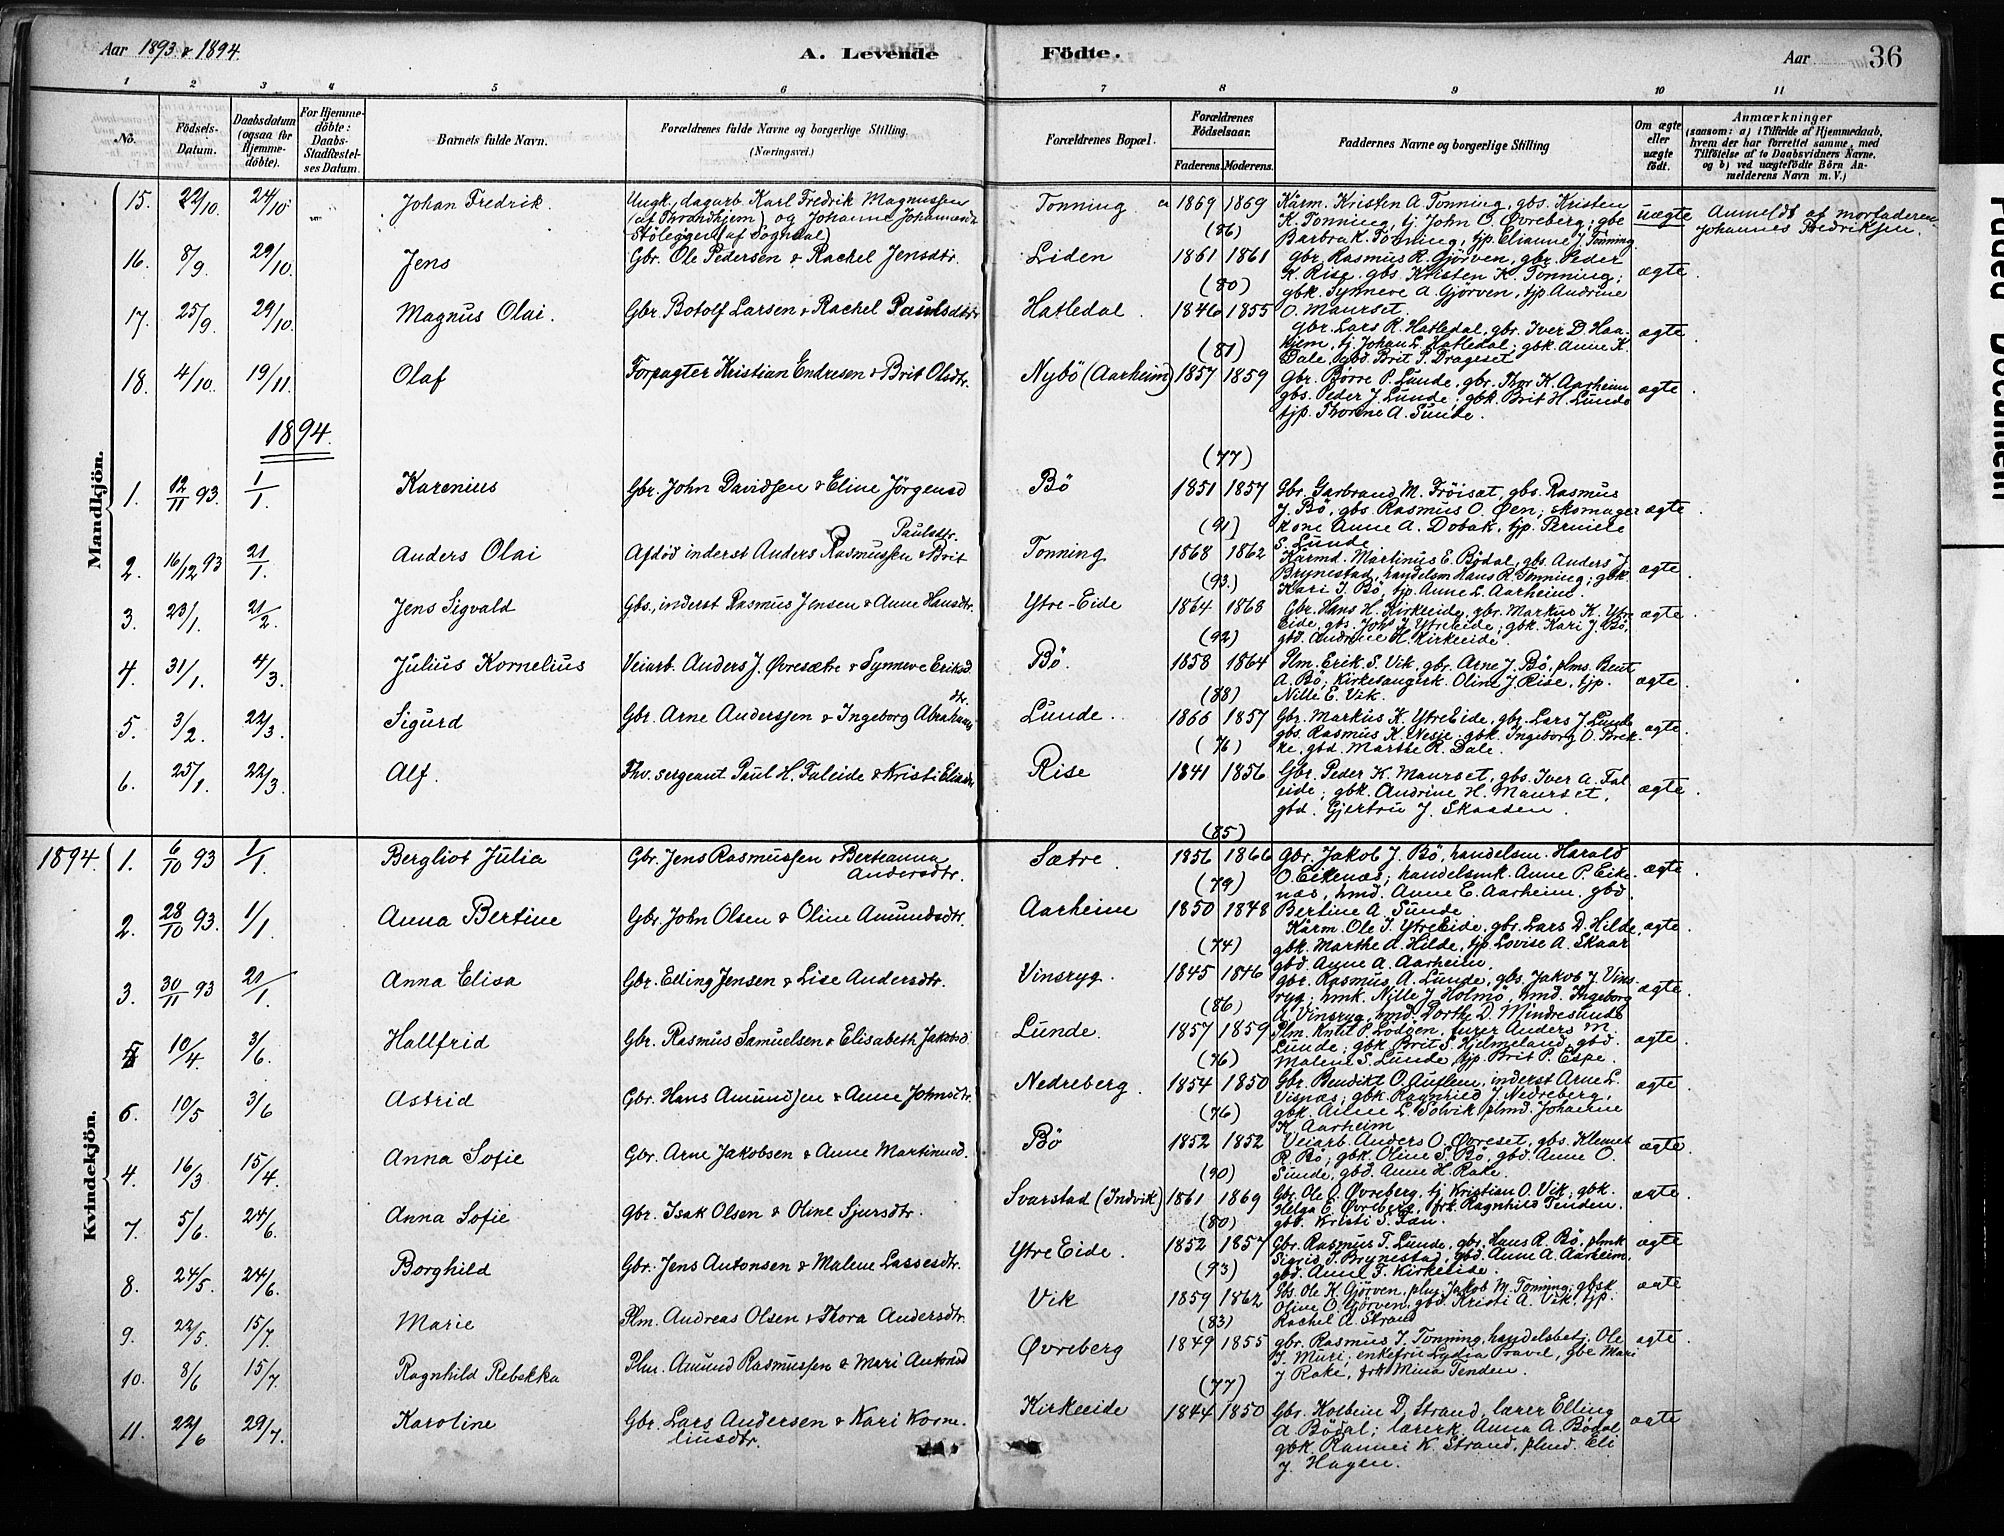 Aar 1893 & 1894.
A. Levende Födte.
Aar 36
1 2 3 4 5 6 7 8 9 10 11
No.
Födsels-Datum.
Daabsdatum (ogsaa for Hjemme-döbte).
For Hjemme-döbte: Daabs-Stadfæstel-ses Datum.
Barnets fulde Navn.
Forældrenes fulde Navne og borgerlige Stilling.
(Næringsvei.)
Forældrenes Bopæl.
Forældrenes Födselsaar.
Faderens. Moderens.
Faddernes Navne og borgerlige Stilling
Om ægte eller uægte födt.
Anmærkninger
(saasom: a) i Tilfælde af Hjemmedaab, hvem der har forrettet samme, med Tilföielse af to Daabsvidners Navne. og b) ved uægtefödte Börn Anmelderens Navn m. V.)
Mandkjön.
15. 22/10. 24/10. Johan Fredrik. Ungk., dagarb. Karl Fredrik Magnussen (af Throndhjem) og Johanne Johannesd. Stölegger (af Sogndal) Tonning 1869 1869 (86) Kårm. Kristen A. Tonning, gbs. Kristen K. Tonning, tj. John O. Øvreberg; gbe Barbra K. Tonning, tjp. Elianne J. Tonning. uægte Anmeldt af morfaderen Johannes Fredriksen.
16. 8/9. 29/10. Jens Gbr. Ole Pedersen & Rachel Jensdtr. Liden 1861 1861 (80) Gbr. Rasmus R. Gjörven, gbr. Peder K. Rise, gbs. Kristen K. Tonning; gbk. Synneve A. Gjörven, tjp. Andrine O. Maurset. ægte.
17. 25/9. 29/10. Magnus Olai. Gbr. Botolf Larsen & Rachel Paulsdtr. Hatledal. 1846 1855 (81) Gbr. Lars R. Hatledal, gbr. Iver D. Haahjem, tj. Johan L. Hatledal; gbk. Anne K. Dale, gbd. Brit P. Drageset ægte
18. 4/10. 19/11. Olaf Forpagter Kristian Endresen & Brit Olsdtr. Nybö (Aarheim) 1857 1859 Gbr. Börre P. Lunde, gbr. Thor K. Aarheim gbs. Peder J. Lunde; gbk. Brit H. Lunde tjp. Thorine A. Sunde. ægte.
1894.
(77)
1. 12/11 93. 1/1 Karenius Gbr. John Davidsen & Eline Jörgensd Bö 1851 1857 (91) Gbr. Garbrand M. Fröiset, gbs. Rasmus J. Bö, gbs. Rasmus O. Øen; skomagerkone Anne A. Dobak, tjp. Perniele S. Lunde ægte.
2. 16/12 93 21/1. Anders Olai Afdöd inderst Anders Rasmussen & Brit Paulsdtr. Tonning 1868 1862 (93.) Kårmd. Martinus E. Bödal, gbs. Anders J. Brynestad, handelsm Hans R. Tonning; gbk. Kari J. Bö, tjp. Anne L. Aarheim. ægte.
3. 23/1. 21/2. Jens Sigvald Gbs., inderst Rasmus Jensen & Anne Hansdtr. Ytre-Eide 1864 1868 (92) Gbr. Hans H. Kirkeeide, gbr. Markus K. Ytre Eide, gbs. Johs J. YtreEide; gbk. Kari J. Bö, gbd. Andrine H. Kirkeeide. ægte.
4. 31/1. 4/3. Julius Kornelius Veiarb. Anders J. Øvresætre & Synneve Eriksd dtr. Bö. 1858 1864 (88) Plm. Erik S. Vik, gbr. Arne J. Bö, plms. Bent A. Bö; kirkesangerk. Oline J. Rise, tjp. Nille E. Vik. ægte.
5. 3/2. 22/3. Sigurd Gbr. Arne Anderssen & Ingeborg Abrahams Lunde. 1866 1857 (76) Gbr. Markus K. YtreEide, gbr. Lars J. Lunde gbs. Rasmus K. Nesje; gbk. Ingeborg O. Brekke, gbd. Marthe R. Dale. ægte.
6. 25/1. 22/3. Alf. Fhv. sergeant Paul H. Faleide & Kristi Eliasdtr Rise 1841 1856 Gbr. Peder K. Maurset, gbs. Iver A. Faleide; gbk. Andrine H. Maurset, gbd. Gjertru J. Skaaden. ægte.
(85)
Kvindekjön.
1894. 1. 6/10 93 1/1 Bergliot Julia Gbr. Jens Rasmussen & Berteanna Andersdtr. Sætre. 1856 1866 (79) Gbr. Jakob J. Bö, handelsm. Harald O. Eikenæs; handelsmk. Anne P. Eikenæs, hmd. Anne E. Aarheim, gbd. Bertine A. Sunde ægte.
2. 28/10 93. 1/1. Anna Bertine Gbr. John Olsen & Oline Amundsdtr. Aarheim 1850 1848 (74) Kårm. Ole J. YtreEide, gbr. Lars D. Hilde, gbk. Marthe A. Hilde, tjp. Lovise A. Skaar gbd. Anne A. Aarheim. ægte.
3. 30/11 93 21/1. Anna Elisa Gbr. Elling Jensen & Lise Andersdtr. Vinsryg. 1845 1846 (86) gbr. Rasmus A. Lunde, gbs. Jakob J. Vinsryg; hmk. Nille J. Holmö, hmd. Ingeborg A. Vinsryg, hmd. Dorthe D. Mindresunde ægte.
5 10/4. 3/6. Hallfrid Gbr. Rasmus Samuelsen & Elisabeth Jakobsd Lunde. 1857 1859 (76) Plm. Knut P. Lodöen, furer Anders M. Lunde; gbk. Brit S. Hjelmeland, gbd. Malene S. Lunde, tjp. Brit P. Espe. ægte.
6. 10/5 3/6 Astrid Gbr. Hans Amundsen & Anne Johnsdtr. Nedreberg. 1854 1850 (76) Gbr. Bendikt O. Auflem, inderst Arne L. Visnæs; gbk. Ragnhied J. Nedreberg, gbk. Ailine L. Solvik, plmd. Johanne K. Aarheim ægte
4. 16/3 15/4. Anna Sofie Gbr. Arne Jakobsen & Anne Martinusd. Bö 1852 1852 (90) Veiarb. Anders O. Øvreset, gbs. Klemet R. Bö; gbk. Oline S. Bö, gbd. Anne O. Sunde, gbd. Anne H. Rake. ægte.
7. 5/6. 24/6. Anna Sofie Gbr. Isak Olsen & Oline Sjursdtr. Svarstad (Indvik) 1861 1869 (80) Gbr. Ole O. Øvreberg, tj. Kristian O. Vik; gbk. Helga E. Øvreberg, frk. Ragnhild Tenden, gbd. Kristi S. Tan. ægte.
8. 24/5. 24/6. Borghild Gbr. Jens Antonsen & Malene Lassesdtr. Ytre Eide. 1852 1857 (93) Gbr. Rasmus T. Lunde, gbr. Hans R. Bö, plmk Sigrid S. Brynestad, gbd. Anne A. Aarheim, gbd. Anne T. Kirkeeide. ægte
9. 22/5. 15/7. Marie Plm. Andreas Olsen & Thora Andersdtr. Vik 1859 1862 (83) Gbs. Ole K. Gjörven, plms. Jakob M. Tonning; gbsk. Oline O. Gjörven, gbd. Kristi A. Vik, tjp. Rachel A. Strand ægte
10. 8/6 15/7. Ragnhild Rebekka Plm. Amund Rasmussen & Mari Antonsd Øvreberg 1849 1855 (77) gbr. Rasmus J. Tonning, handelsbetj. Ole J. Muri; enkefru Lydia Pravel, gbe Mari J. Rake, frk. Mina Tenden. ægte.
11. 22/6 29/7. Karoline Gbr. Lars Andersen & Kari Korneliusdtr. Kirkeeide 1844 1850 Gbr. Kolbein D. Strand, lærer Elling A. Bödal; lærerk. Anna A. Bödal gbk. Rannei K. Strand, plmd. Eli J. Hagen. ægte